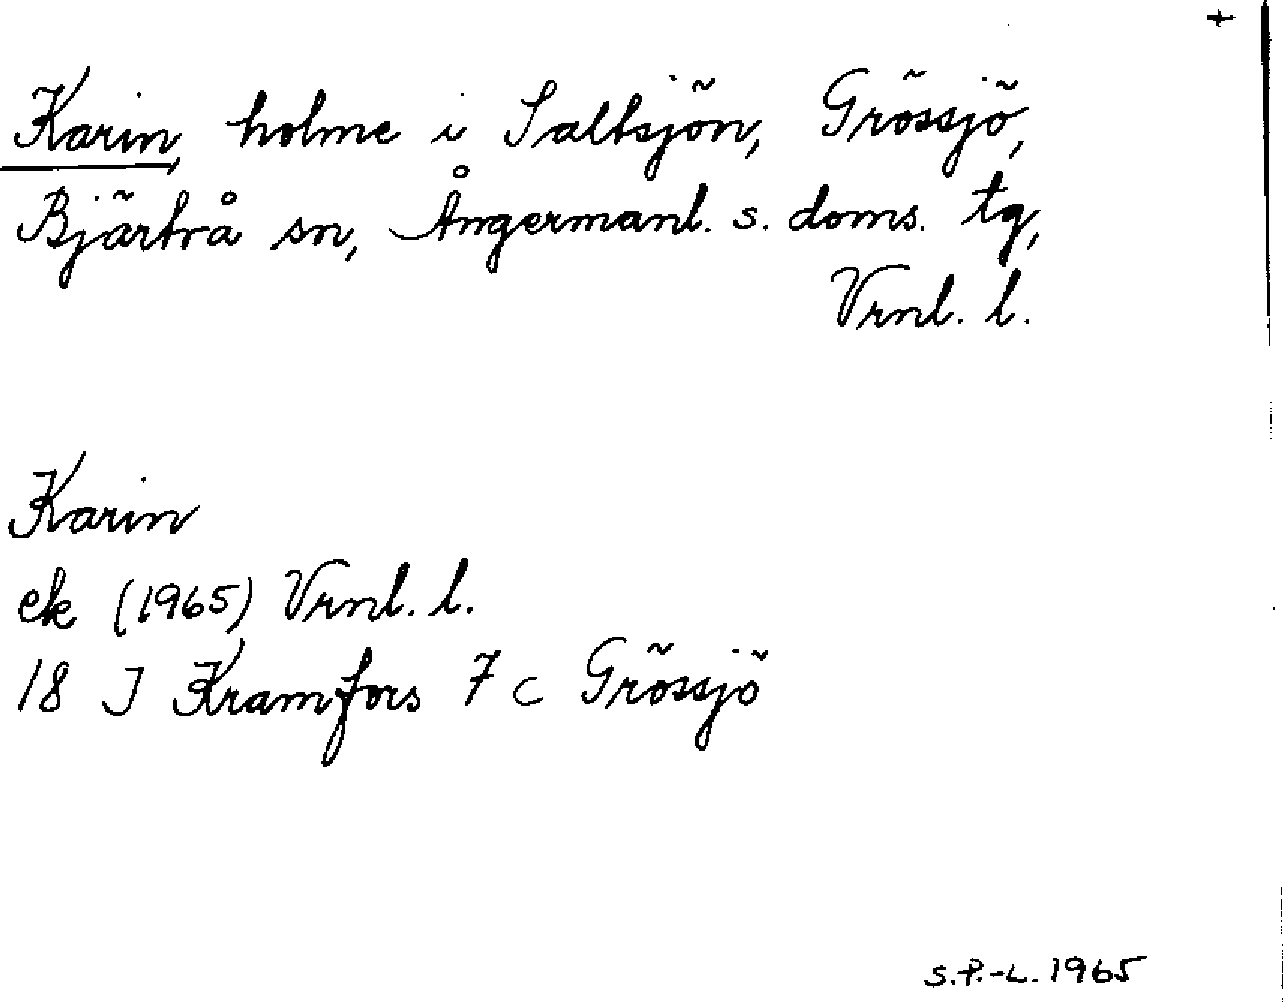 +
Karin, holme i Saltsjön, Grössjö,
Bjärtrå sn, Ångermanl. s. doms. tg,
Vrnl. l.
Karin
ek (1965) Vrnl. l.
18 J Kramfors 7 c Grössjö
S.P.-L. 1965